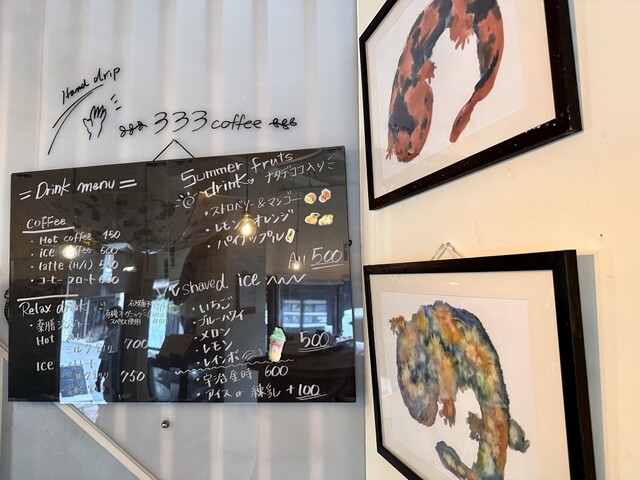 Hand drip
333 coffee
= Drink menu =
Coffee
・Hot coffee 450
・ice coffee 500
・latte (H/I)
・コーヒーフロート
Relax drink
Hot
700
Ice
750
Summer fruts
drink ナタデココ入り
・ストロベリー&マンゴー
・レモン オレンジ
・パイナップル
All 500
shaved ice
・いちご
・ブルーハワイ
・メロン
・レモン
・レインボー
500
・宇治金時 600
・アイス or 練乳 +100